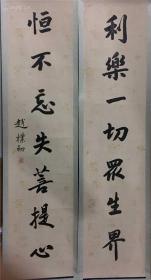 利樂一切眾生界
恒不忘失菩提心
趙樸初